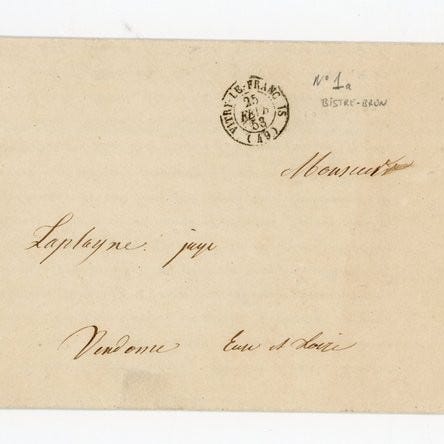 VITRY-LE-FRANÇAIS
25
FEVR
53
(49)
N° 1a
BISTRE-BRUN
Monsieur
Laplayne juge
Vendome Eure et Loire